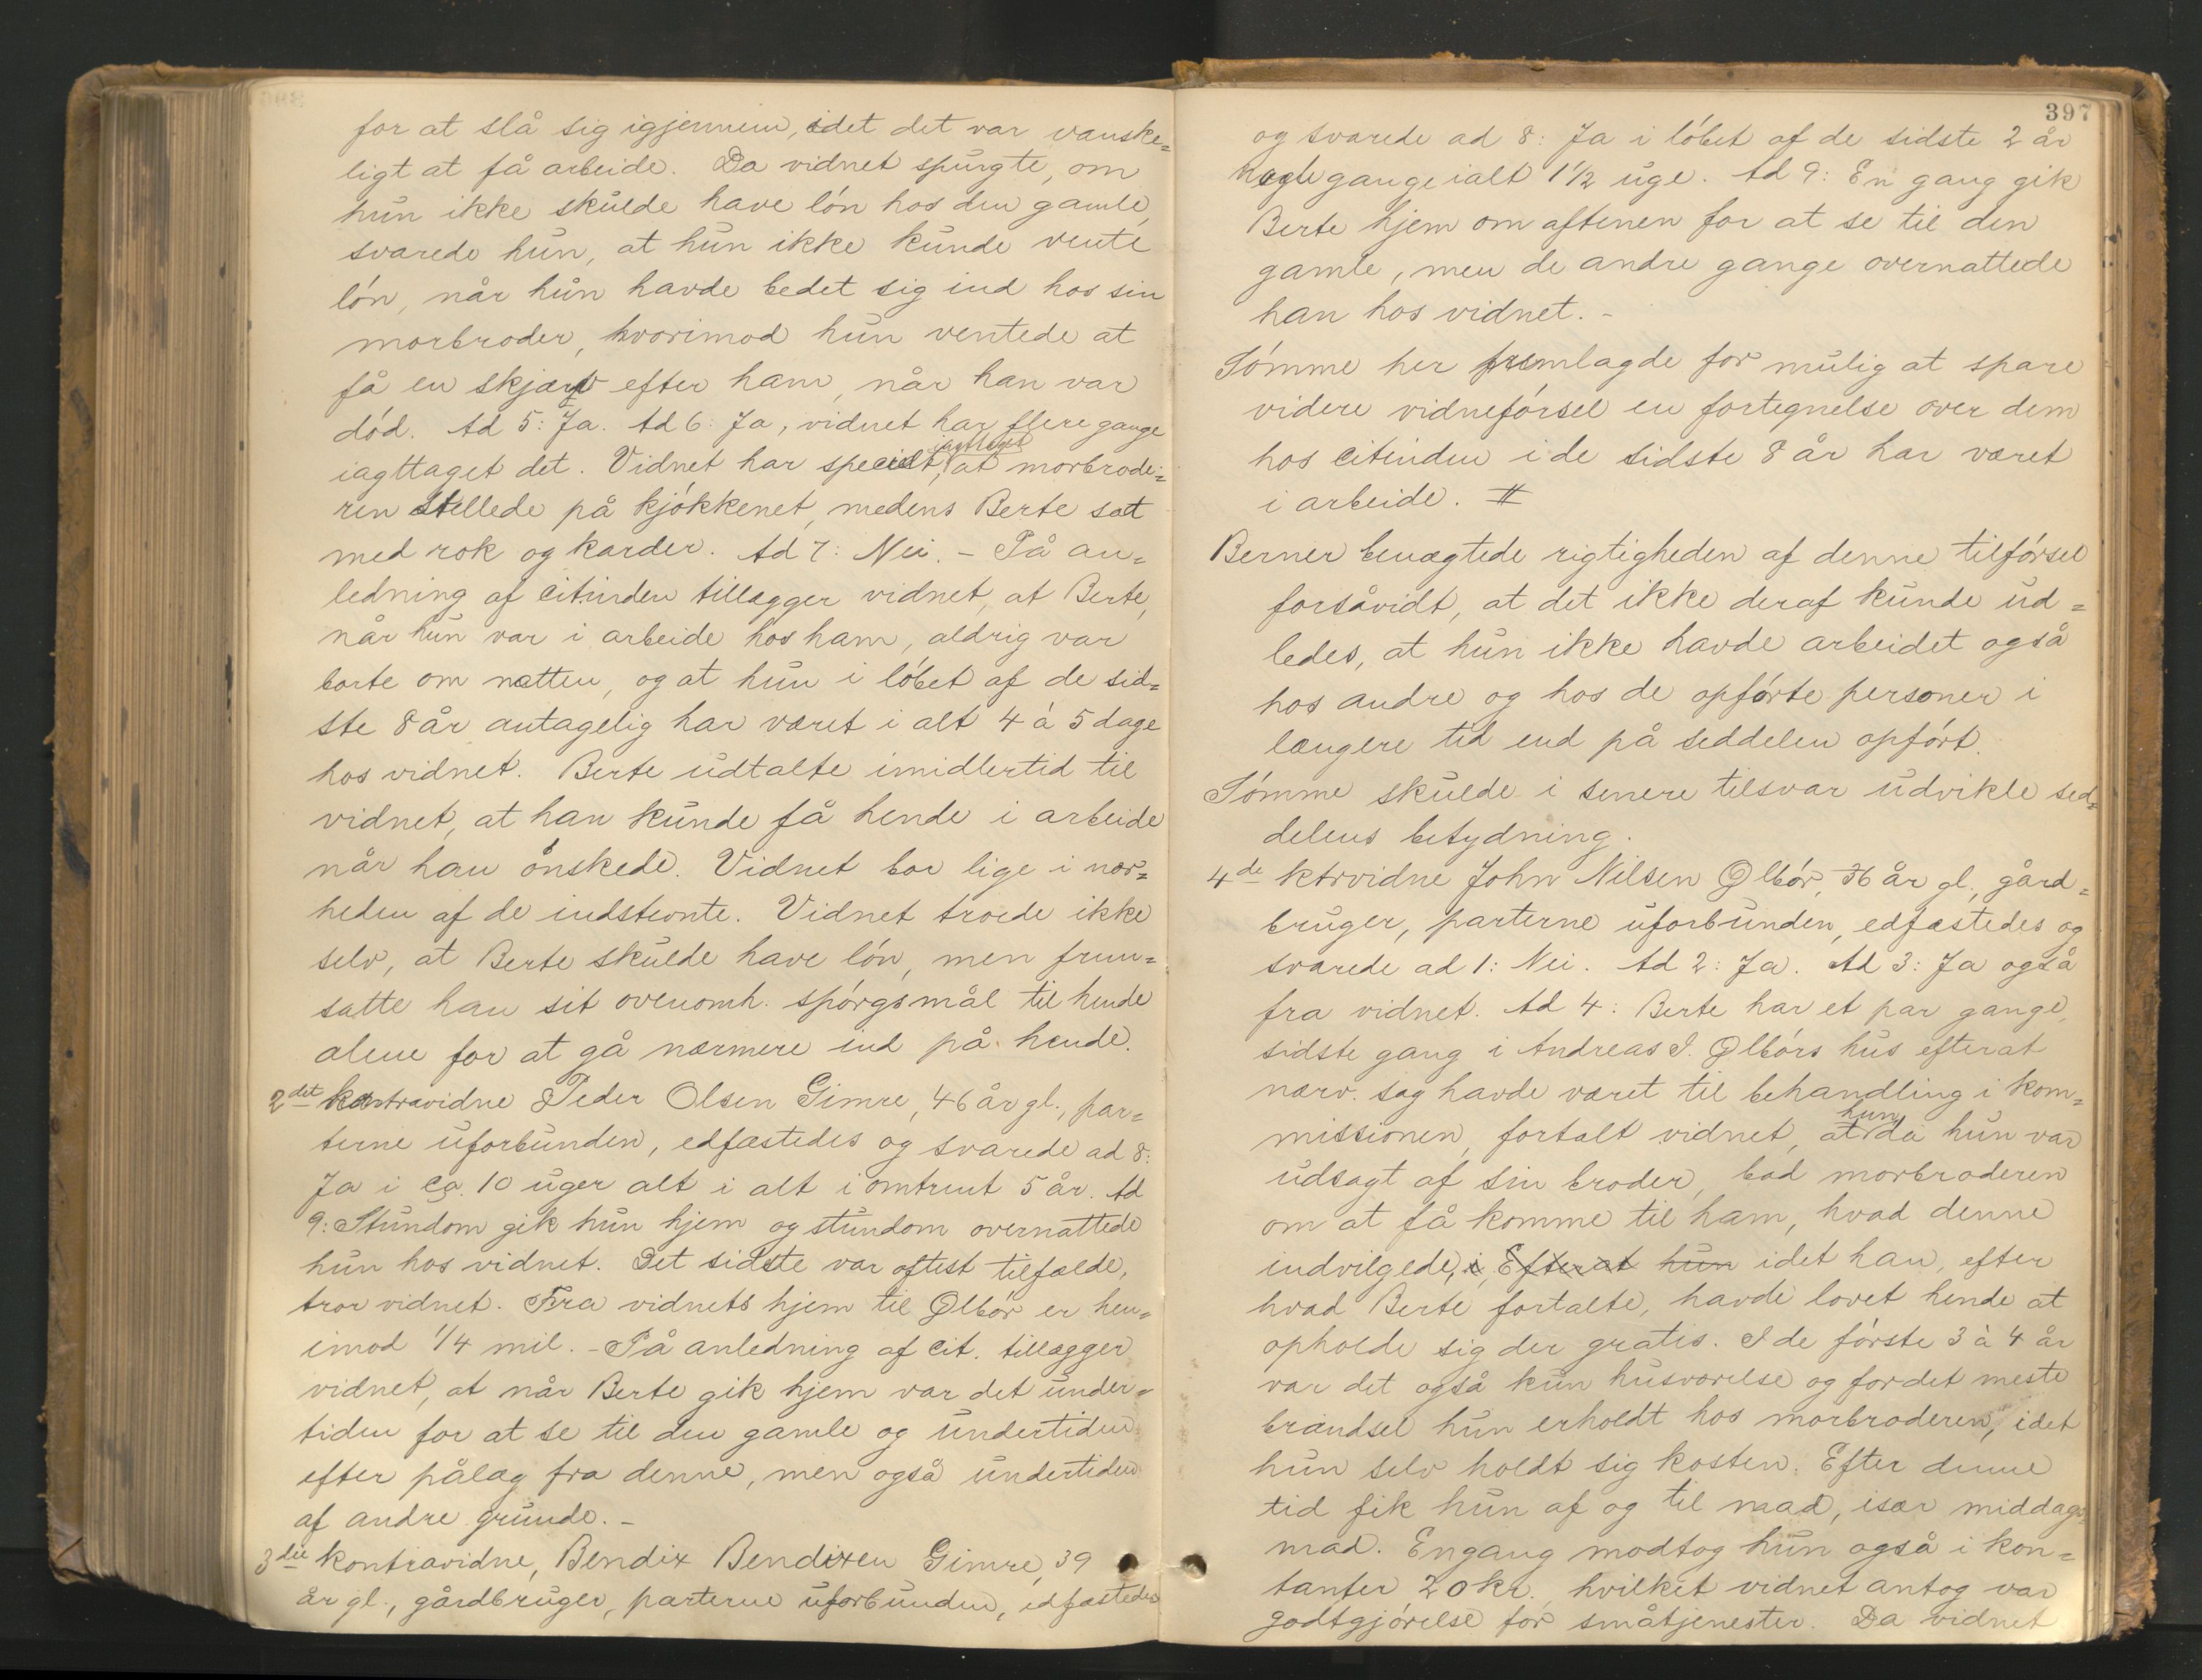 for at slå sig igjennem, idet det var vanske=
ligt at få arbeide. Da vidnet spurgte, om
hun ikke skulde have lón hos den gamle,
svarede hun, at hun ikke kunde vente
lón, når hun havde bedet sig ind hos sin
morbroder, hvorimod hun ventede at
få en skjærv efter ham, når han var
dód. Ad 5: Ja. Ad 6: Ja, vidnet har flere gange
iagttaget det. Vidnet har specielt iagttaget, at morbrode=
ren stellede på kjókkenet, medens Berte sat
med rok og karder. Ad 7: Nei. – På an=
ledning af citinden tillægger vidnet, at Berte,
når hun var i arbeide hos ham, aldrig var
borte om natten, og at hun i lóbet af de sid=
ste 8 år antagelig har været i alt 4 à 5 dage
hos vidnet. Berte udtalte imidlertid til
vidnet, at han kunde få hende i arbeide
når han ónskede. Vidnet bor lige i nær=
heden af de indstevnte. Vidnet troede ikke
selv, at Berte skulde have lón, men frem=
satte han sit ovenomh. spórgsmål til hende
alene for at gå nærmere ind på hende.
2det kontravidne Peder Olsen Gimre, 46 år gl., par=
terne uforbunden, edfæstedes og svarede ad 8:
Ja i ca. 10 uger alt i alt i omtrent 5 år. Ad
9: Stundom gik hun hjem og stundom overnattede
hun hos vidnet. Det sidste var oftest tilfælde,
tror vidnet. Fra vidnets hjem til Ølbór er hen=
imod 1/4 mil. – På anledning af cit. tillægger
vidnet, at når Berte gik hjem var det under=
tiden for at se til den gamle og undertiden
efter pålæg fra denne, men også undertiden
af andre grunde. –
3die kontravidne, Bendix Bendixen Gimre, 39
år gl., gårdbruger, parterne uforbunden, edfæstedes
397
og svarede ad 8: Ja i lóbet af de sidste 2 år
nogle gange ialt 1 1/2 uge. Ad 9: En gang gik
Berte hjem om aftenen for at se til den
gamle, men de andre gange overnattede
han hos vidnet. –
Sómme her fremlagde for mulig at spare
videre vidnefórsel en fortegnelse over dem
hos citinden i de sidste 8 år har været
i arbeide. #
Berner benægtede rigtigheden af denne tilfórsel
forsåvidt, at det ikke deraf kunde ud=
ledes, at hun ikke havde arbeidet også
hos andre og hos de opfórte personer i
længere tid end på seddelen opfórt.
Sómme skulde i senere tilsvar udvikle sed=
delens betydning.
4de ktrvidne John Nilsen Ølbór, 36 år gl., gård=
bruger, parterne uforbunden, edfæstedes og
svarede ad 1: Nei. Ad 2: Ja. Ad 3: Ja også
fra vidnet. Ad 4: Berte har et par gange,
sidste gang i Andreas I. Ølbórs hus efterat
nærv. sag havde været til behandling i kom=
missionen, fortalt vidnet, at hun da hun var
udsagt af sin broder, bad morbroderen
om at få komme til ham, hvad denne
indvilgede, i, Efterat hun idet han, efter
hvad Berte fortalte, havde lovet hende at
opholde sig der gratis. I de fórste 3 à 4 år
var det også kun husværelse og for det meste
brændsel hun erholdt hos morbroderen, idet
hun selv holdt sig kosten. Efter denne
tid fik hun af og til mad, især middags=
mad. Engang modtog hun også i kon=
tanter 20 kr. hvilket vidnet antog var
godtgjórelse for småtjenester. Da vidnet